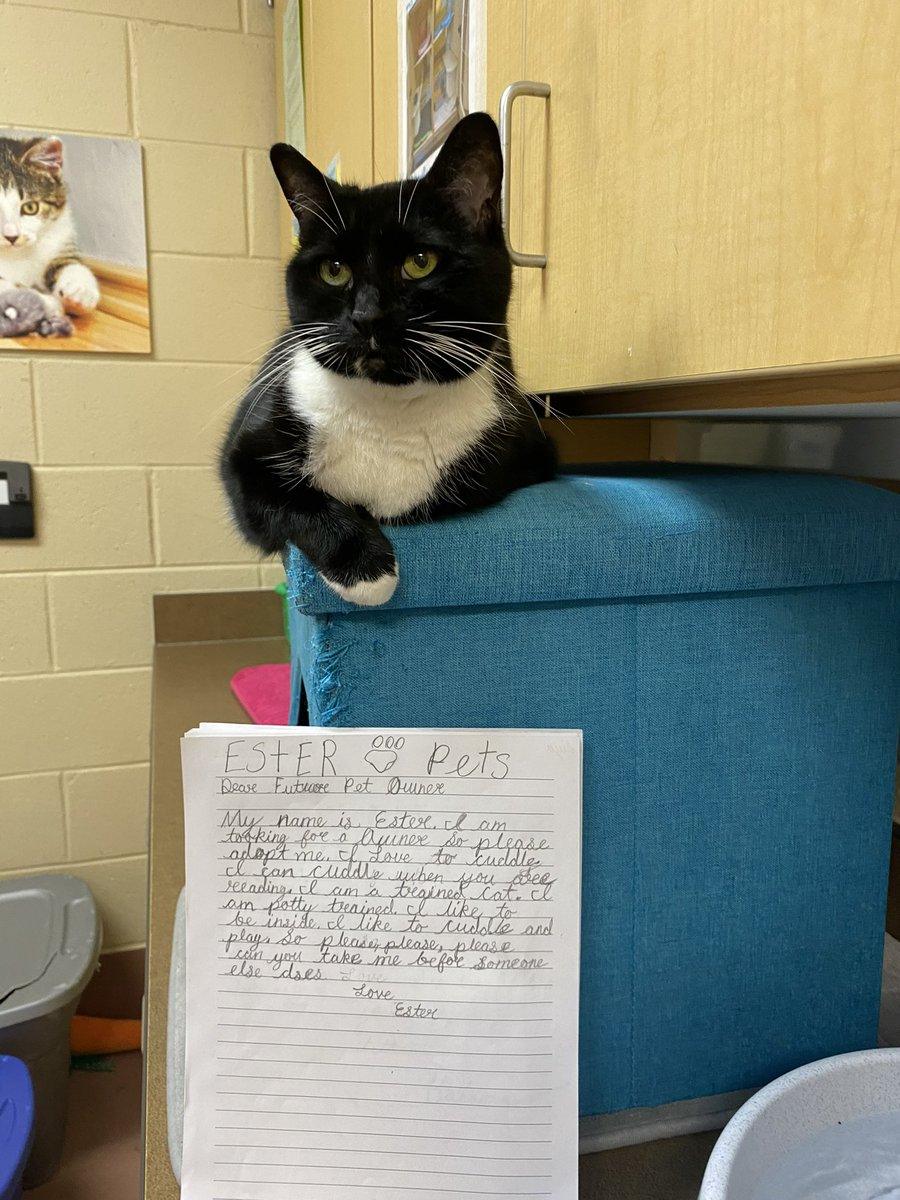 ESTER Pets
Dear Future Pet Owner
My name is Ester. I am
looking for a Owner so please
adopt me. I Love to cuddle.
I can cuddle when you are
reeading. I am a treained Cat. I
am potty treained. I like to
be inside. I like to cuddle and
play. So please, please, please
can you take me befor someone
else does Love
Love
Ester